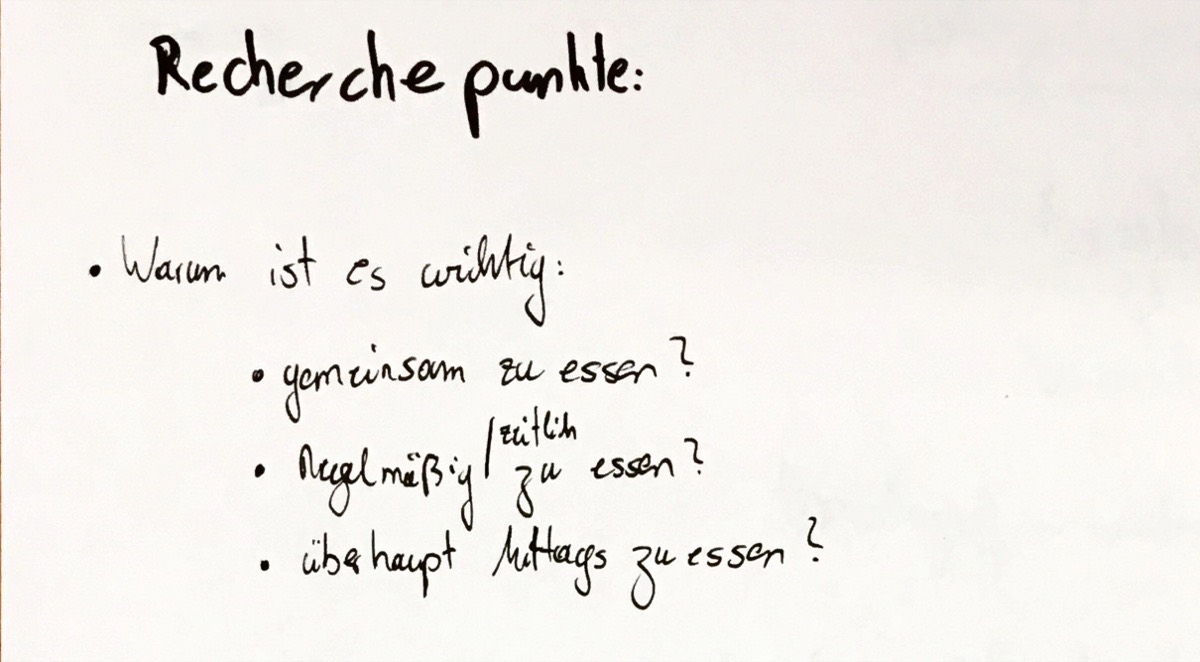 Recherchepunkte:
• Warum ist es wichtig:
• gemeinsam zu essen?
• Regelmäßig/zeitlich zu essen?
• überhaupt Mittags zu essen?